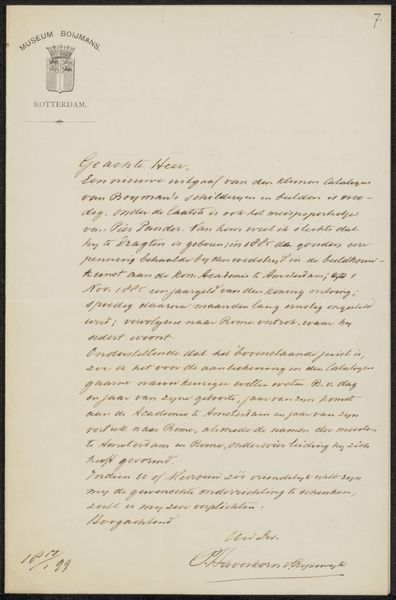 7.
MUSEUM BOIJMANS.
ROTTERDAM.
Geachte Heer,
Eene nieuwe uitgaaf van den kleinen Catalogus
van Boymans schilderijen en beelden is noo-
dig. Onder de laatste is ook het meisjesportretje
van Pier Pander. Van hem weet ik slechts dat
hij te Dragten is geboren; in 1885 de gouden eere
penning behaalde bij den wedstrijd in de beeldhouw-
kunst aan de kon. Academie te Amsterdam; 1
Nov. 1885 een jaargeld van den koning ontving;
spoedig daarna maanden lang ernstig ongesteld
werd; vervolgens naar Rome vertrok, waar hij
sedert woont.
Onderstellende dat het bovenstaande juist is,
zou ik het voor de aanteekening in den Catalogus
gaarne nauwkeuriger willen weten B. v. dag
en jaar van zijne geboorte, jaar van zijn komst
aan de Academie te Amsterdam en jaar van zijn
vertrek naar Rome, alsmede de namen der meesters
te Amsterdam en Rome, onder wier leiding hij zich
heeft gevormd.
Indien U of Mevrouw zoo vriendelijk wilt zijn
mij de gewenschte onderrichting te schenken,
zult u mij zeer verplichten.
Hoogachtend
Uw Dr.
P. Haverkorn v. Rijsewijk
18 17/1 99